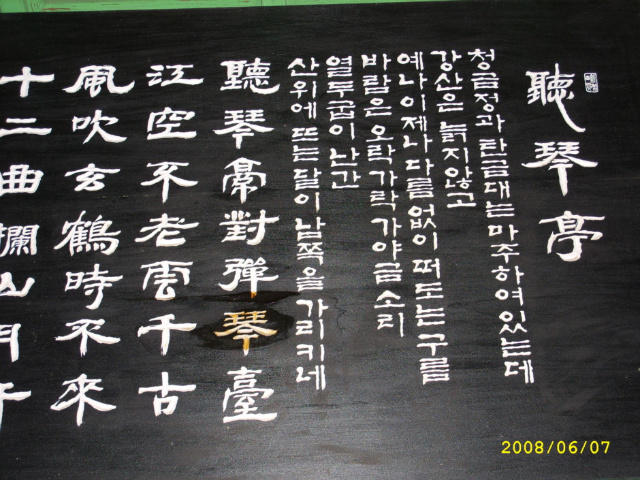 聽琴亭
청금정과 탄금대는 마주하여 있는데
강산은 늙지 않고
예나 이제나 다름없이 떠도는 구름
바람은 오락가락 가야금 소리
열두 굽이 난간
산위에 뜨는 달이 남쪽을 가리키네
聽琴亭對彈琴臺
江空不老雲千古
風吹玄鶴時不來
十二曲欄山月午
2008/06/07